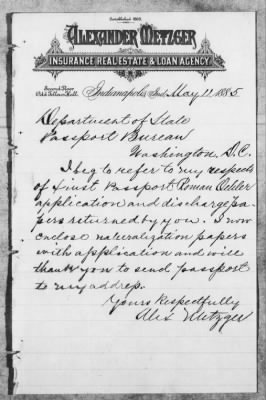 Established 1863.
ALEXANDER METZGER
INSURANCE REAL ESTATE & LOAN AGENCY,
Second Floor
Odd Fellows Hall.
Indianapolis, Ind. May 11 1885
Department of State
Passport Bureau
Washington, D.C.
I beg to refer to my respects
of first Passport Roman Oehler
application and discharge pa-
pers returned by you. I now
enclose naturalization papers
with application and will
thank you to send passport
to my address.
Yours Respectfully
Alex Metzger